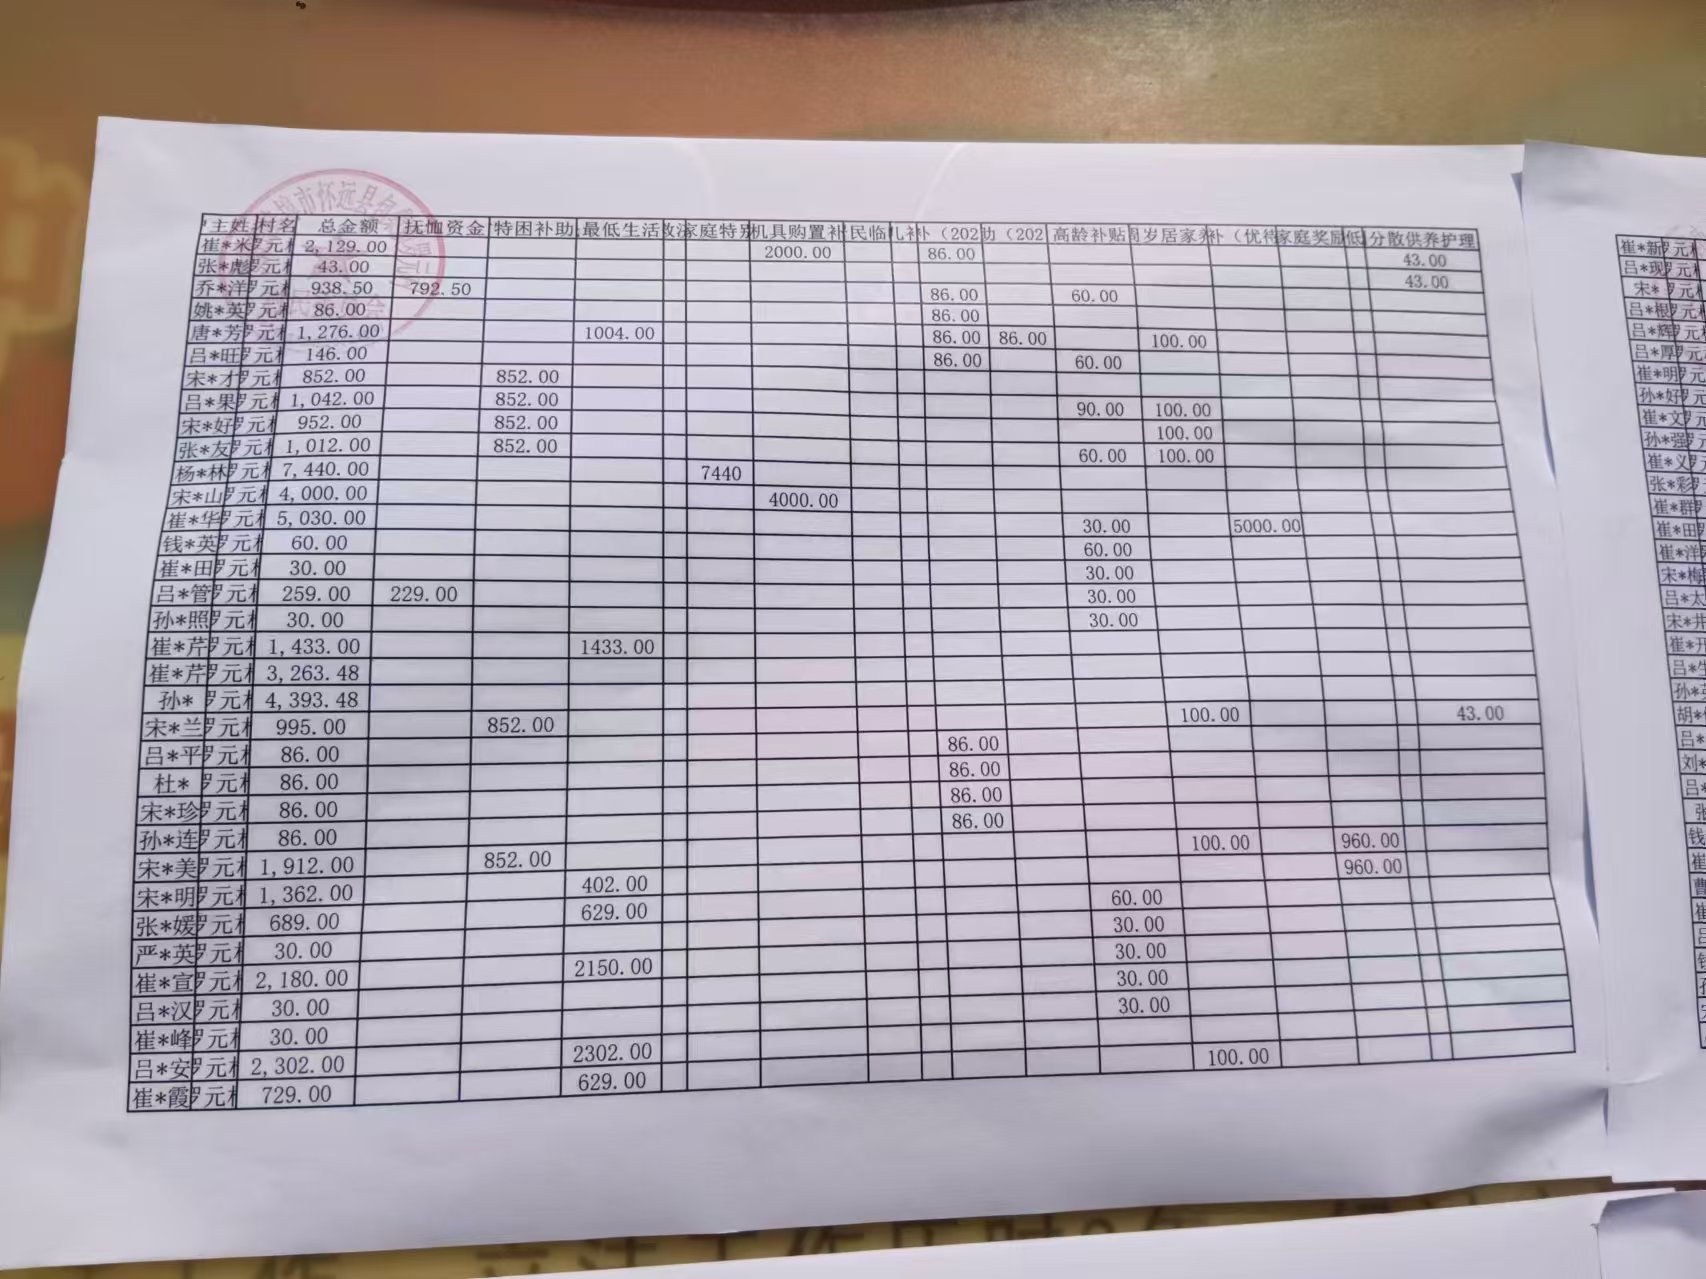 市怀远县
主姓 村名 总金额 抚恤资金 特困补助 最低生活 家庭特别 机具购置补 民临 补（202 （202 高龄补贴 周岁居家养 补（优待 家庭奖励 低 分散供养护理
崔*米 罗元村 2,129.00 2000.00 86.00 43.00
张*彪 罗元村 43.00 43.00
乔*洋 罗元村 938.50 792.50 86.00 60.00
姚*英 罗元村 86.00 86.00
唐*芳 罗元村 1,276.00 1004.00 86.00 86.00 100.00
吕*旺 罗元村 146.00 86.00 60.00
宋*才 罗元村 852.00 852.00
吕*果 罗元村 1,042.00 852.00 90.00 100.00
宋*好 罗元村 952.00 852.00 100.00
张*友 罗元村 1,012.00 852.00 60.00 100.00
杨*林 罗元村 7,440.00 7440
宋*山 罗元村 4,000.00 4000.00
崔*华 罗元村 5,030.00 30.00 5000.00
钱*英 罗元村 60.00 60.00
崔*田 罗元村 30.00 30.00
吕*管 罗元村 259.00 229.00 30.00
孙*照 罗元村 30.00 30.00
崔*芹 罗元村 1,433.00 1433.00
崔*芹 罗元村 3,263.48
孙* 罗元村 4,393.48
宋*兰 罗元村 995.00 852.00 100.00 43.00
吕*平 罗元村 86.00 86.00
杜* 罗元村 86.00 86.00
宋*珍 罗元村 86.00 86.00
孙*连 罗元村 86.00 86.00
宋*美 罗元村 1,912.00 852.00 100.00 960.00
宋*明 罗元村 1,362.00 402.00 960.00
张*媛 罗元村 689.00 629.00 60.00
严*英 罗元村 30.00 30.00
崔*宣 罗元村 2,180.00 2150.00 30.00
吕*汉 罗元村 30.00 30.00
崔*峰 罗元村 30.00 30.00
吕*安 罗元村 2,302.00 2302.00
崔*霞 罗元村 729.00 629.00 100.00
崔*新 罗元
吕*现 罗元
宋* 罗元
吕*根 罗元
吕*辉 罗元
吕*厚 罗元
崔*明 罗元
孙*好 罗元
崔*文 罗元
孙*强 罗元
崔*义 罗元
张*彩 罗
崔*群 罗
崔*田
崔*洋
宋*梅
吕*太
宋*井
崔*开
吕*生
孙*英
胡*
吕*
刘*
吕*
张
钱
崔
曹
崔
吕